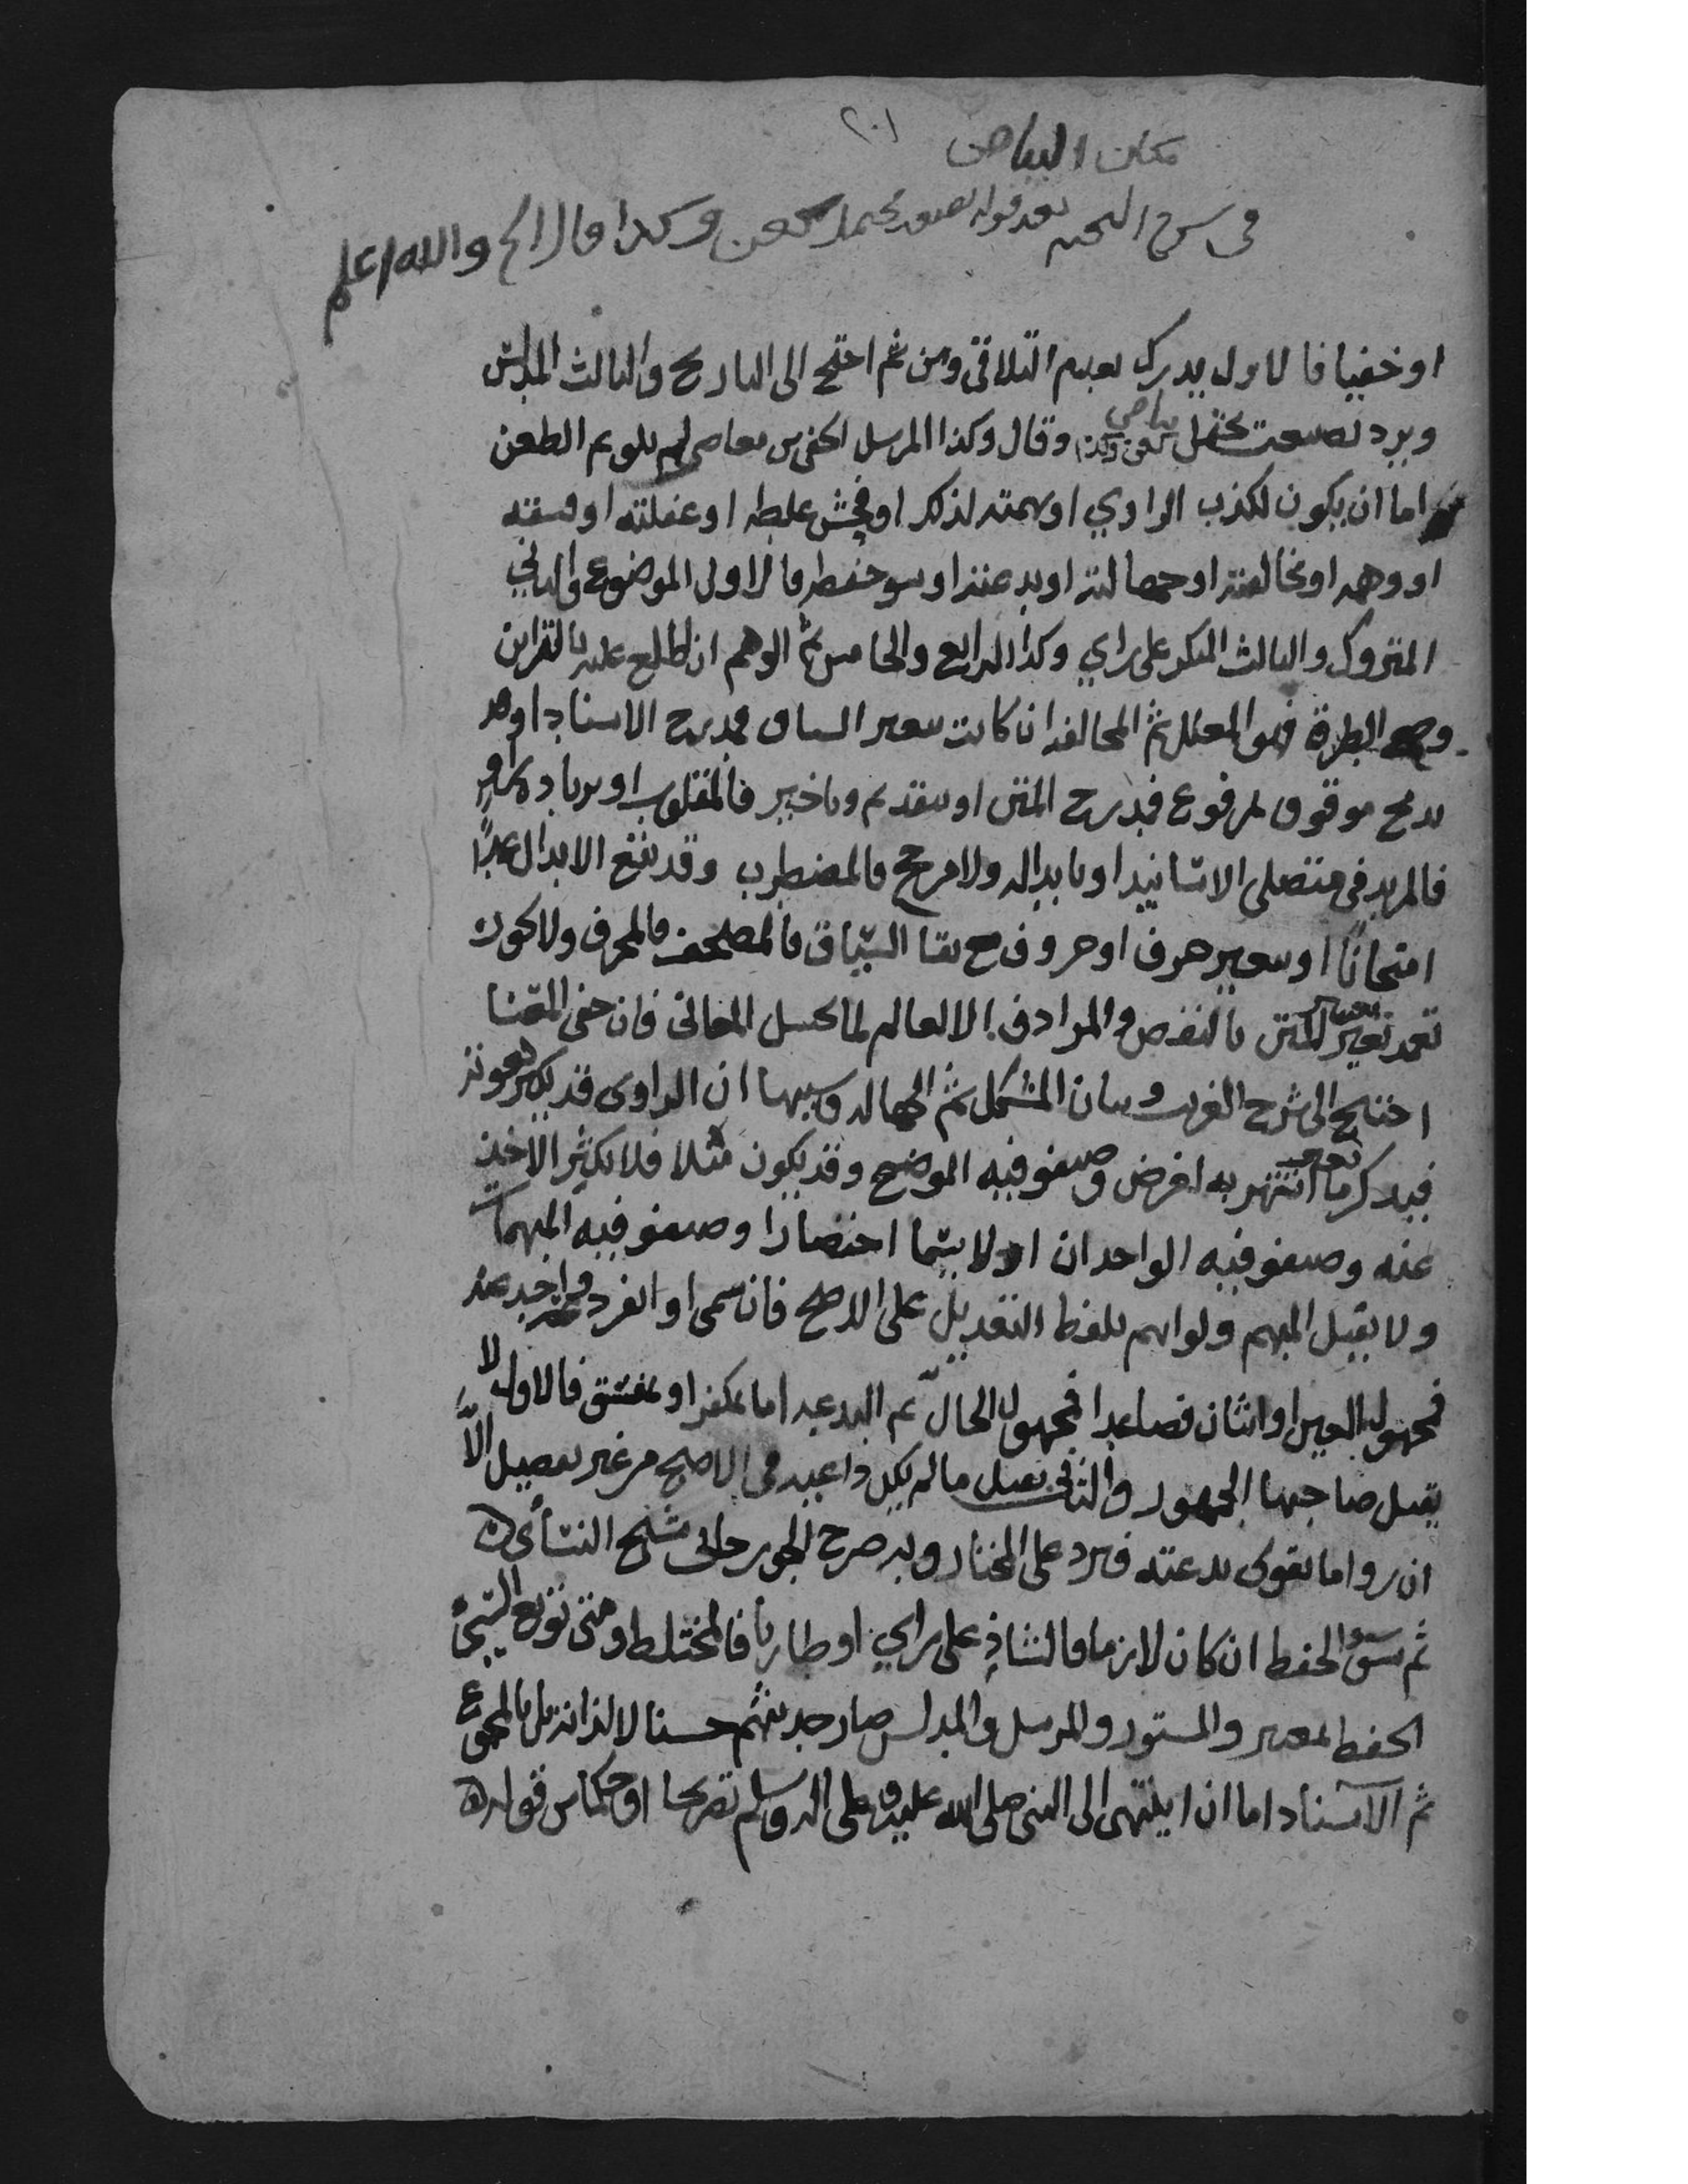 ٢٠١
مكان البياض
في شرح النخبه بعد قوله بصيغه تحتمل كعن وكذا قال الخ والله اعلم
او خفيا فالاول يدرك بعدم التلاقي ومن ثم احتج الى التاريخ والثالث المدلس
ويرد بصيغت تحتمل كعن وكذا بياض وقال وكذا المرسل الخفي من معاصر لم يلق ثم الطعن
اما ان يكون لكذب الراوي او تهمته لذلك او فحش غلطه او غفلته او فسقه
او وهمه او مخالفته او جهالته او بدعته او سو حفظه فالاول الموضوع والثاني
المتروك والثالث المنكر على راي وكذا الرابع والخامس ثم الوهم ان اطلع عليه بالقراين
وجمع الطرق فهو المعلل ثم المخالفه ان كانت بتغير السياق فمدرج الاسناد او
بدمج موقوف بمرفوع فمدرج المتن او بتقديم وتاخير فالمقلوب او بزيادة راو
فالمزيد في متصلي الاسانيد او بابداله ولا مرجح فالمضطرب وقد يقع الابدال عمدا
امتحانا او بتغيير حرف او حروف مع بقا السياق فالمصحف فالمحرف ولا يجوز
تعمد تغيير المتن بالنقص والمرادف الا لعالم بما يحيل المعاني فان خفي المعنا
احتيج الى شرح الغريب وبيان المشكل ثم الجهاله وسببها ان الراوي قد يكثر نعوته
فيذكر بما اشتهر به لغرض وصنفو فيه الموضح وقد يكون مقلا فلا يكثر الاخذ
عنه وصنفو فيه الواحدان اولا يسما اختصارا وصنفو فيه المبهمات
ولا يقبل المبهم ولو ابهم بلفظ التعديل على الاصح فان سمى او انفرد واحد عنه
فمجهول العين او اثنان فصاعدا فمجهول الحال ثم البدعه اما بمكفر او بمفسق فالاول لا
يقبل صاحبها الجمهور والثاني يقبل ما لم يكن داعيه في الاصح من غير تفصيل الا
ان روا ما يقوى بدعته فيرد على المختار وبه صرح الجورجاني شيخ النسائي
ثم سو الحفظ ان كان لازما فالشاذ على راي او طاريا فالمختلط ومتى توبع السيئ
الحفظ بمعتبر والمستور والمرسل والمدلس صار حديثهم حسنا لا لذاته بل بالمجموع
ثم الاسناد اما ان ينتهى الى النبي صلى الله عليه وعلى اله وسلم تصريحا او حكما من قوله